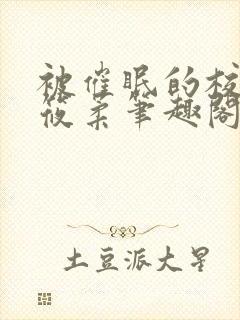 被催眠的校
筱柔笔趣阁
土豆派大星